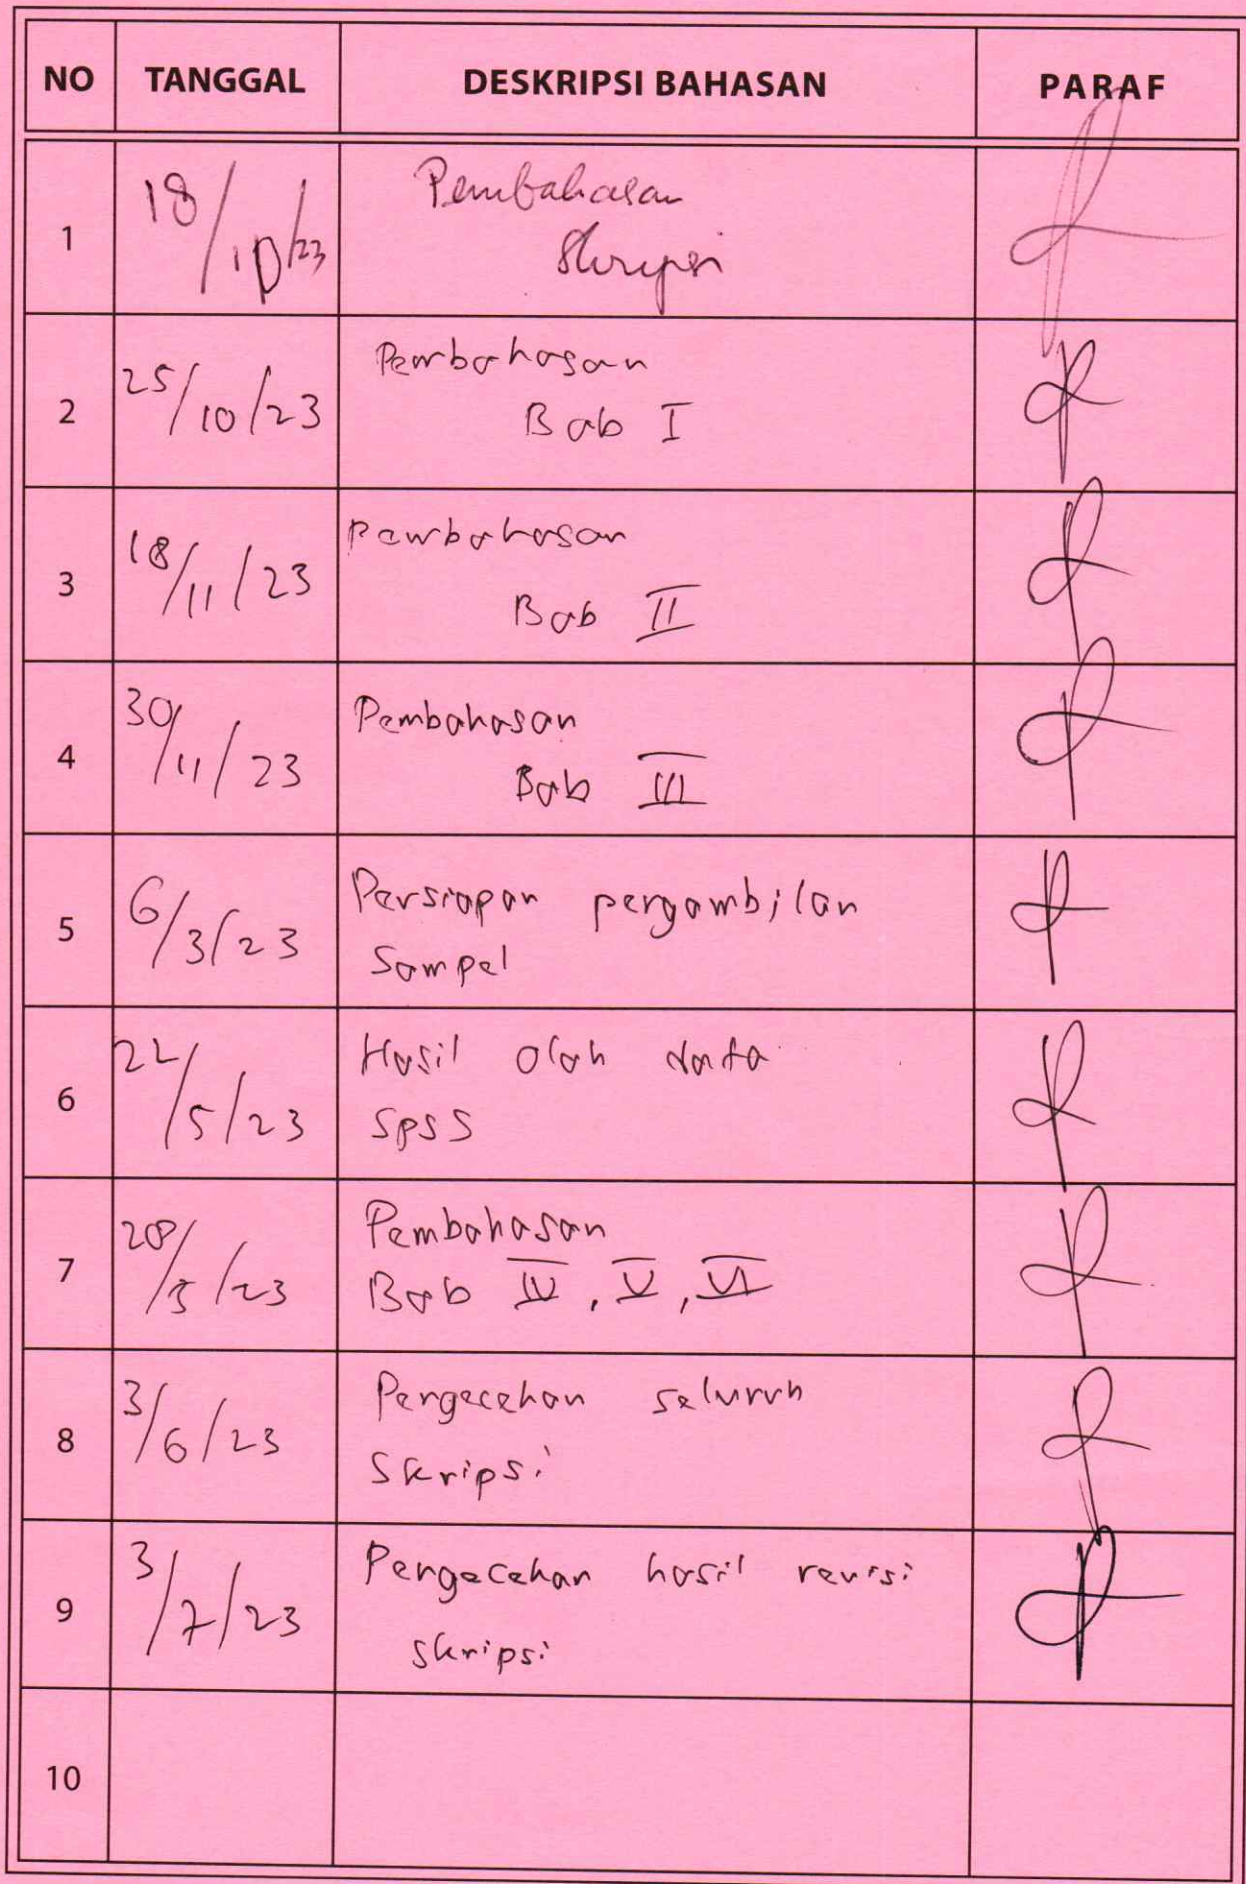 NO TANGGAL DESKRIPSI BAHASAN PARAF
1 18/10/23 Pembahasan
Skripsi
2 25/10/23 Pembahasan
Bab I
3 18/11/23 Pembahasan
Bab II
4 30/11/23 Pembahasan
Bab III
5 6/3/23 Persiapan pergambilan
Sampel
6 22/5/23 Hasil olah data
SPSS
7 28/5/23 Pembahasan
Bab IV, V, VI
8 3/6/23 Pergecehan seluruh
Skripsi
9 3/7/23 Pergecehan hasil revisi
skripsi
10